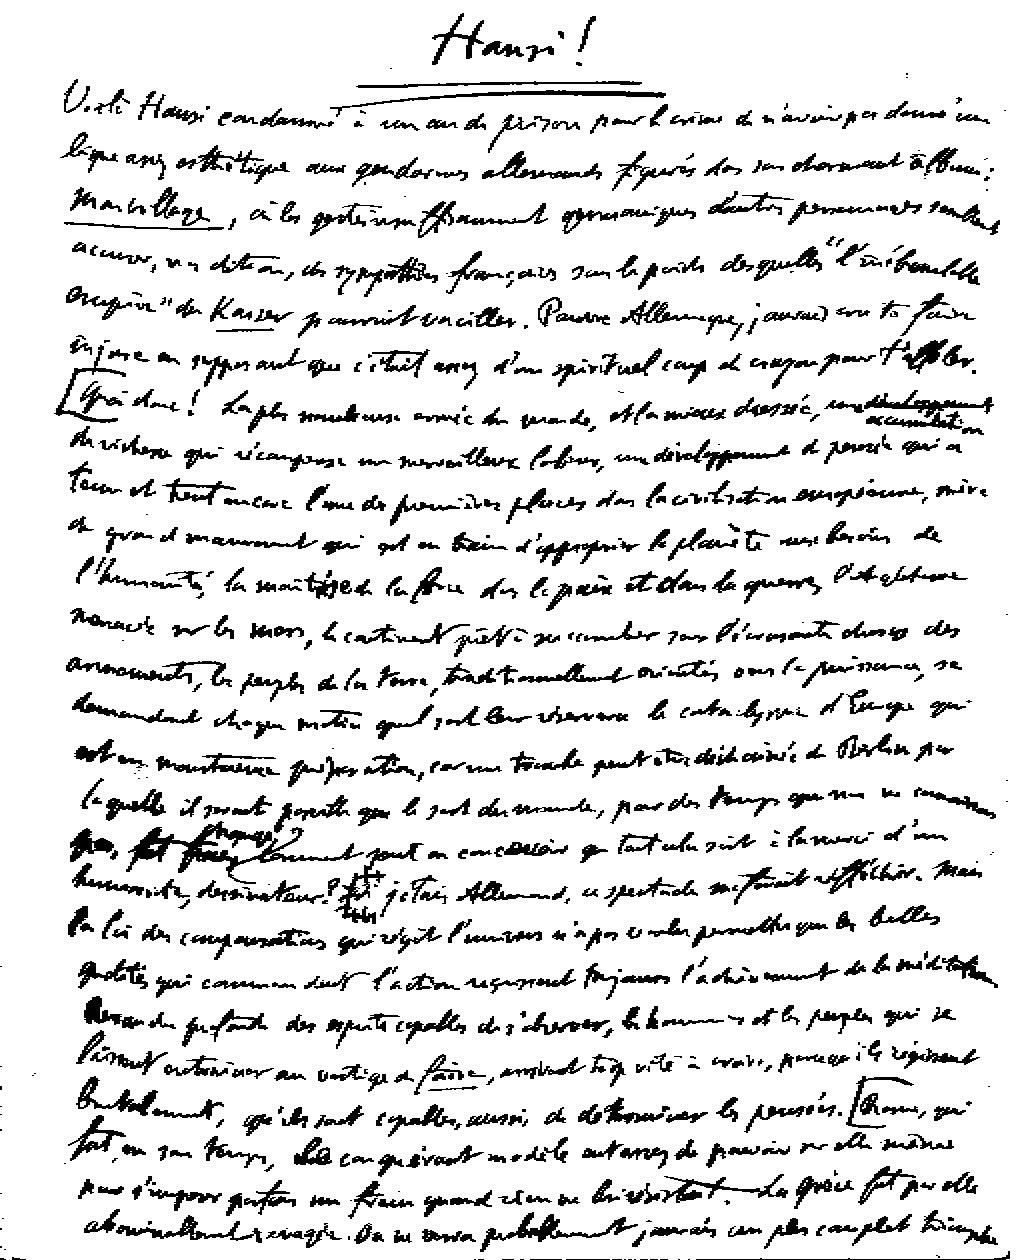 Hansi !
Voilà Hansi condamné à un an de prison pour le crime de n'avoir pas donné un
ligne assez esthétique aux gendarmes allemands figurés dans son charmant album :
Mon village, où les gestes insuffisamment germaniques d'autres personnages semblent
accuser, nous dit-on, des sympathies françaises sous le poids desquelles "l'inébranlable
empire" du Kaiser pourrait vaciller. Pauvre Allemagne, j'aurais cru te faire
injure en supposant que c'était assez d'un spirituel coup de crayon pour t'affoler.
Quoi donc ! La plus nombreuse armée du monde, et la mieux dressée, une accumulation
de richesse qui récompense un merveilleux labeur, un développement de pensée qui a
tenu et tient encore l'une des premières places dans la civilisation européenne, mère
du grand mouvement qui est en train d'approprier la planète aux besoins de
l'humanité, la maîtrise de la force dans la paix et dans la guerre, l'Angleterre
menacée sur les mers, le continent prêt à succomber sous l'écrasante charge des
armements, les peuples de la terre, traditionnellement orientés vers la puissance, se
demandant chaque matin quel sort leur réservera le cataclysme d'Europe qui
est en monstrueuse préparation, car une tourmente peut être déchaînée de Berlin par
laquelle il serait possible que le sort du monde, pour des temps que nous ne connaissons
pas, fût changé, comment peut-on concevoir que tout cela soit à la merci d'un
humoriste, dessinateur ? Si j'étais Allemand, ce spectacle me ferait réfléchir. Mais
la loi des compensations qui régit l'univers n'a pas voulu permettre que les belles
qualités qui commandent l'action reçussent toujours l'achèvement de la méditation
profonde des esprits capables de s'observer, les hommes et les peuples qui se
laissent entraîner au vertige de faire, arrivent trop vite à croire, parce qu'ils régissent
brutalement, qu'ils sont capables, aussi, de déterminer les pensées. Rome, qui
fut, en son temps, le conquérant modèle eut assez de pouvoir sur elle-même
pour s'imposer parfois un frein quand rien ne lui résistait. La Grèce fut par elle
abominablement ravagée. On ne verra probablement jamais un plus complet triomphe